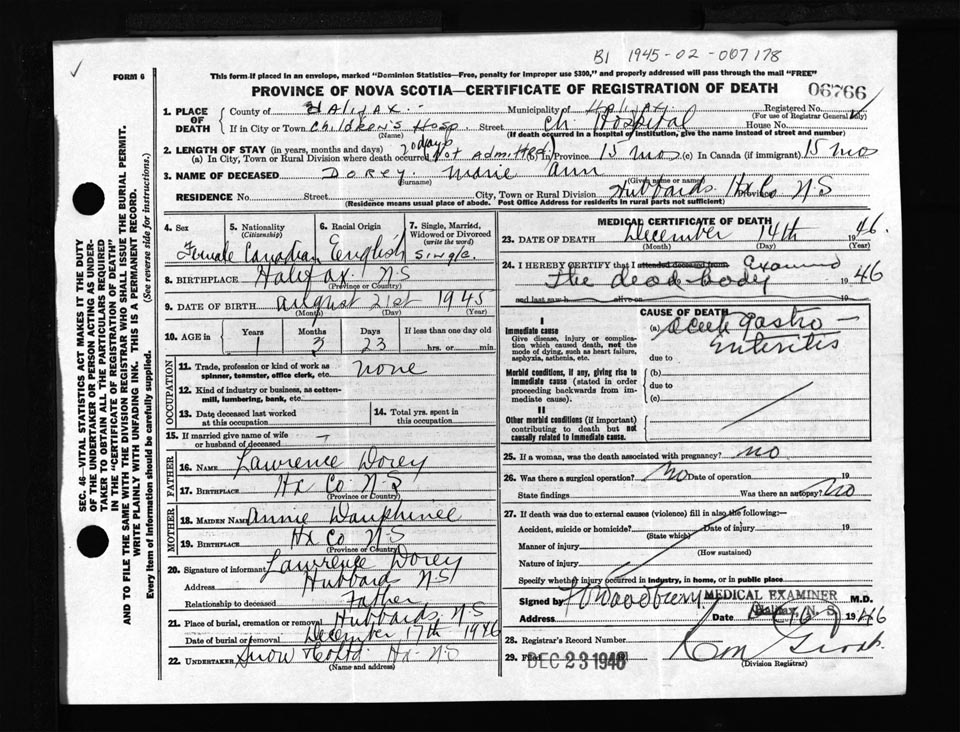 B1 1945-02-007178
✓
FORM 6
This form if placed in an envelope, marked "Dominion Statistics—Free, penalty for improper use $300," and properly addressed will pass through the mail "FREE"
PROVINCE OF NOVA SCOTIA—CERTIFICATE OF REGISTRATION OF DEATH
06766
1. PLACE OF DEATH
County of Halifax. Municipality of Halifax. Registered No.
(For use of Registrar General only)
If in City or Town Children's Hosp Street Ch. Hospital House No.
(Name) (If death occurred in a hospital or institution, give the name instead of street and number)
2. LENGTH OF STAY (in years, months and days) 20 days
(a) In City, Town or Rural Division where death occurred (Not Admitted) In Province 15 mos (c) In Canada (if immigrant) 15 mos
3. NAME OF DECEASED Dorey. Marie Ann
(Surname) (Given name or names)
RESIDENCE No. Street City, Town or Rural Division Hubbards Hx Co N-S
(Residence means usual place of abode. Post Office Address for residents in rural parts not sufficient) Province
4. Sex 5. Nationality (Citizenship) 6. Racial Origin 7. Single, Married, Widowed or Divorced (write the word)
Female Canadian English Single.
8. BIRTHPLACE Halifax. N-S
(Province or Country)
9. DATE OF BIRTH August 21st 1945
(Month) (Day) (Year)
10. AGE in Years Months Days If less than one day old
1 3 23 hrs. or min.
OCCUPATION
11. Trade, profession or kind of work as spinner, teamster, office clerk, etc. none
12. Kind of industry or business, as cotton-mill, lumbering, bank, etc.
13. Date deceased last worked at this occupation
14. Total yrs. spent in this occupation
15. If married give name of wife or husband of deceased —
FATHER
16. NAME Lawrence Dorey
17. BIRTHPLACE Hx Co N-S
(Province or Country)
MOTHER
18. MAIDEN NAME Annie Dauphinee
19. BIRTHPLACE Hx Co N-S
(Province or Country)
20. Signature of informant Lawrence Dorey
Address Hubbards N-S
Relationship to deceased Father
21. Place of burial, cremation or removal Hubbards, N-S
Date of burial or removal December 17th 1946
22. UNDERTAKER Snow & Co Ltd. Hx-N-S
(Name and address)
MEDICAL CERTIFICATE OF DEATH
23. DATE OF DEATH December 14th 1946.
(Month) (Day) (Year)
24. I HEREBY CERTIFY that I attended deceased from Examined
The dead body 19 46
and last saw h alive on 19
CAUSE OF DEATH
I
Immediate cause
Give disease, injury or complication which caused death, not the mode of dying, such as heart failure, asphyxia, asthenia, etc.
(a) Acute gastro-
Enteritis
due to
Morbid conditions, if any, giving rise to immediate cause (stated in order proceeding backwards from immediate cause).
(b)
due to
(c)
II
Other morbid conditions (if important) contributing to death but not causally related to immediate cause.
25. If a woman, was the death associated with pregnancy? no
26. Was there a surgical operation? No Date of operation 19
State findings Was there an autopsy? No
27. If death was due to external causes (violence) fill in also the following:—
Accident, suicide or homicide? Date of injury 19
(State which)
Manner of injury
(How sustained)
Nature of injury
Specify whether injury occurred in industry, in home, or in public place
Signed by MEDICAL EXAMINER M.D.
Halifax, N. S.
Address Date 1946
28. Registrar's Record Number
29. DEC 23 1946
(Division Registrar)
SEC. 46—VITAL STATISTICS ACT MAKES IT THE DUTY
OF THE UNDERTAKER OR PERSON ACTING AS UNDER-
TAKER TO OBTAIN ALL THE PARTICULARS REQUIRED
IN THE "CERTIFICATE OF REGISTRATION OF DEATH"
AND TO FILE THE SAME WITH THE DIVISION REGISTRAR WHO SHALL ISSUE THE BURIAL PERMIT.
WRITE PLAINLY WITH UNFADING INK. THIS IS A PERMANENT RECORD.
Every item of information should be carefully supplied. (See reverse side for instructions.)